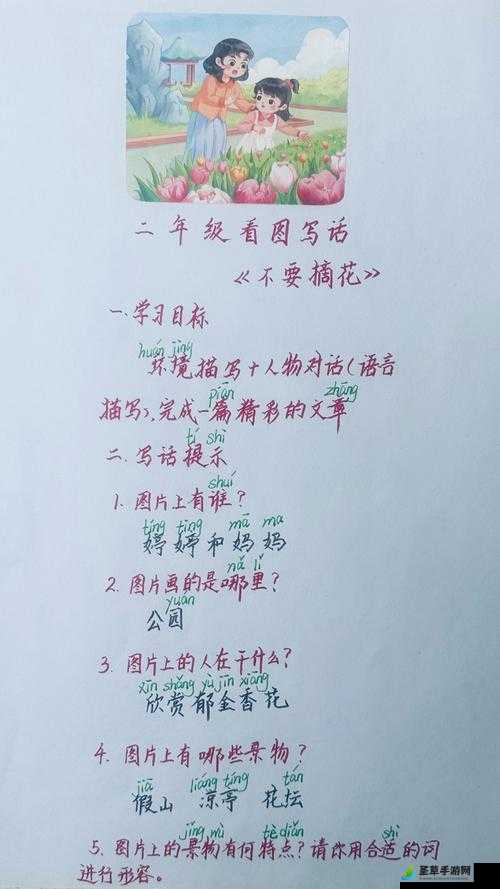 二年级看图写话
《不要摘花》
一、学习目标
huán jìng
环境描写+人物对话(语言
piān zhāng
描写),完成一篇精彩的文章
tí shì
二、写话提示
shuí
1. 图片上有谁?
tíng tíng mā ma
婷婷和妈妈
nǎ lǐ
2. 图片画的是哪里?
yuán
公园
3. 图片上的人在干什么?
xīn shǎng yù jīn xiāng
欣赏郁金香花
4. 图片上有哪些景物?
jiǎ liáng tíng tán
假山 凉亭 花坛
jǐng wù tè diǎn shì
5. 图片上的景物有何特点?请你用合适的词
进行形容。
圣草手游网